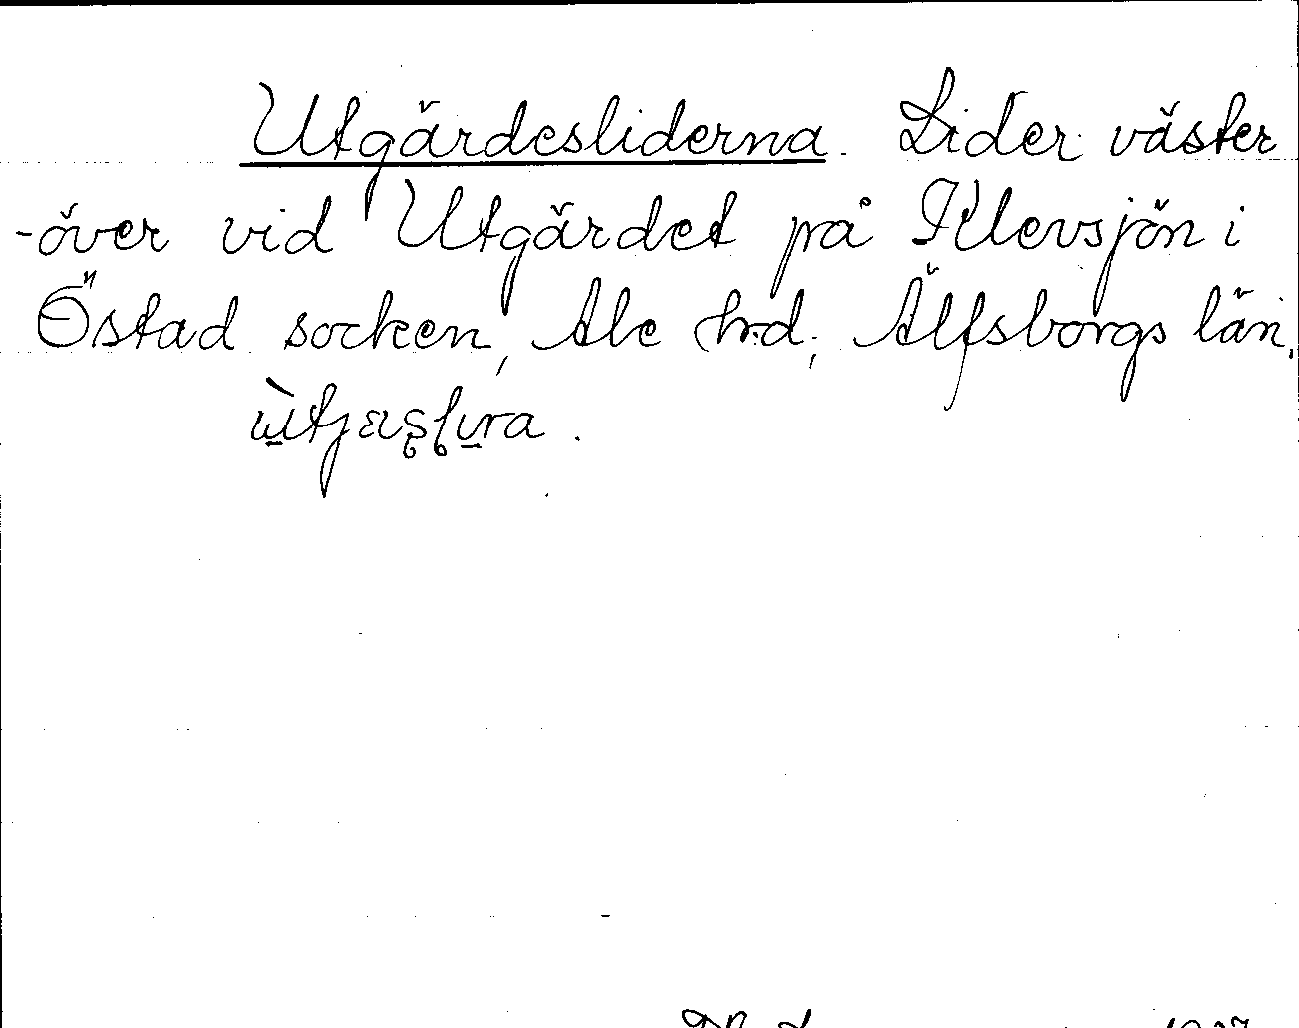 Utgärdesliderna. Lider väster
-över vid Utgärdet på Klevsjön i
Östad socken, Ale hrd, Älfsborgs län.